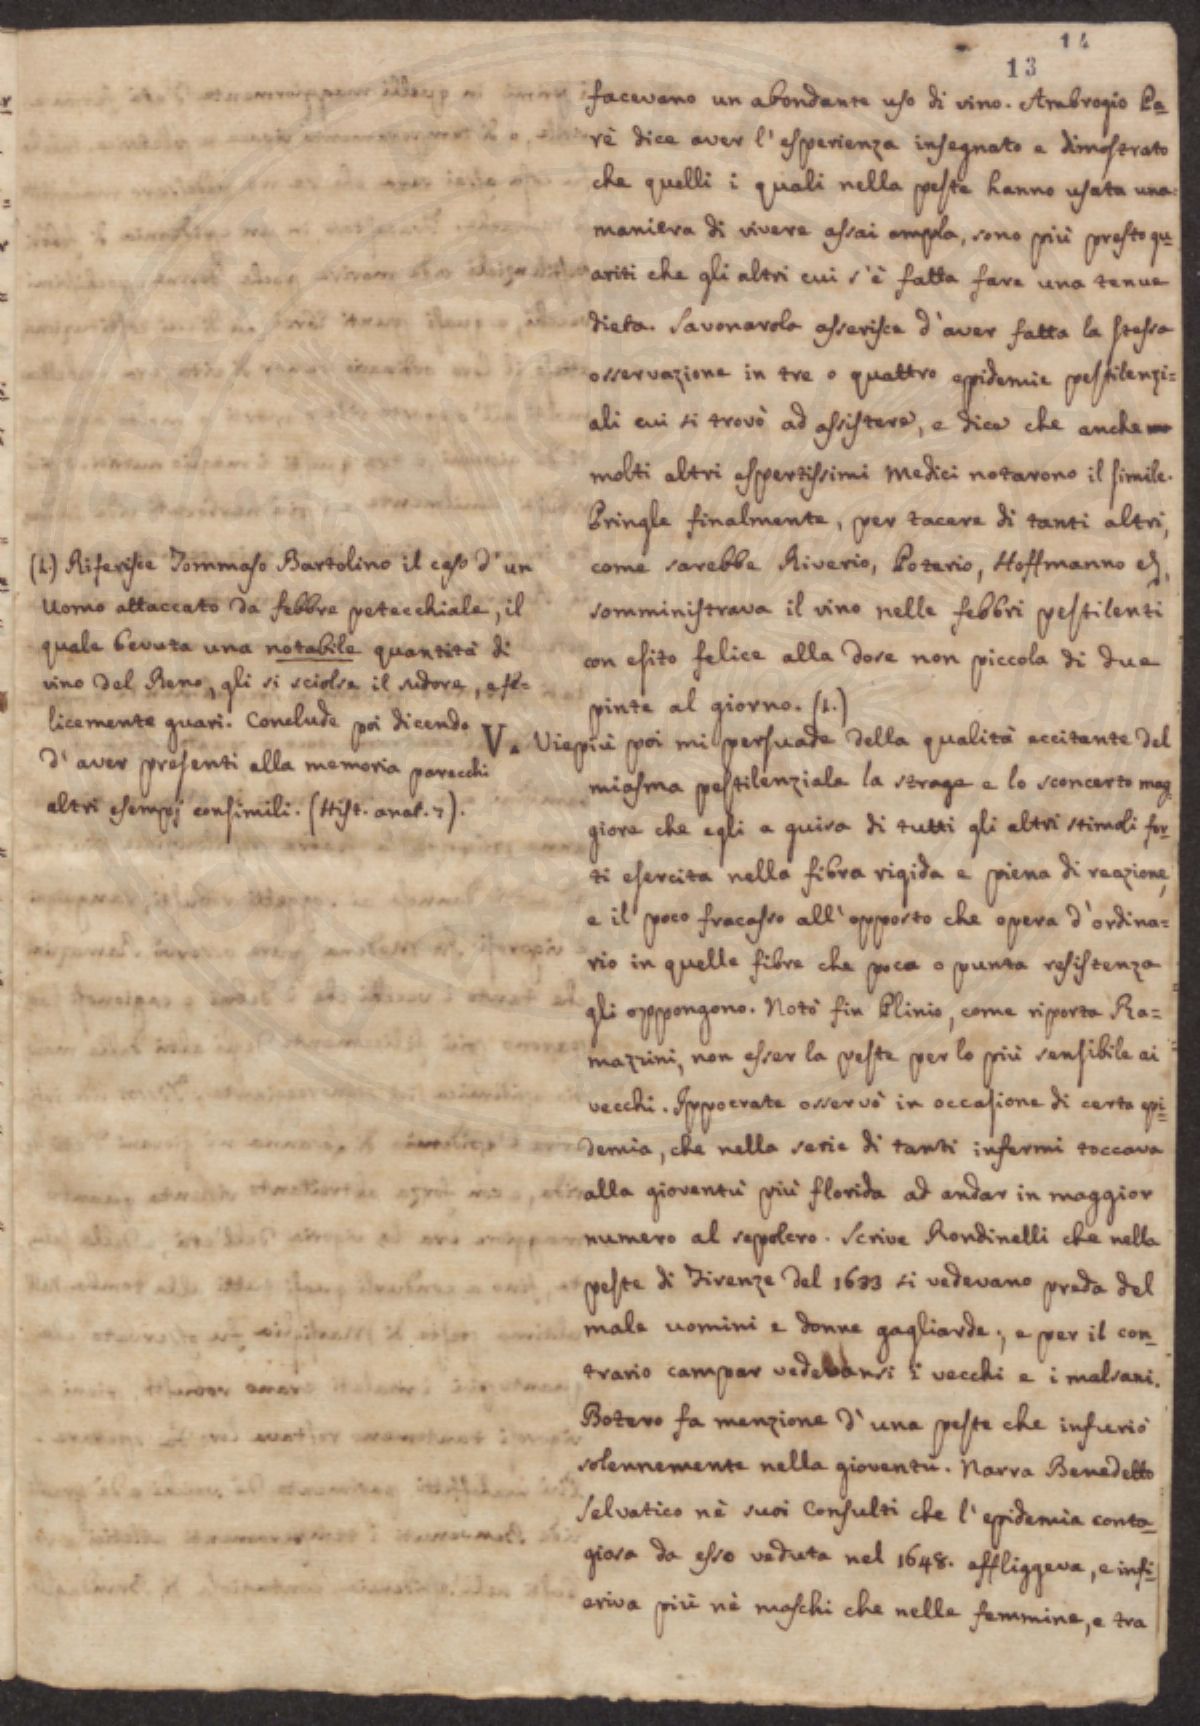 14
13
facevano un abondante uso di vino. Ambrogio Pa=
rè dice aver l'esperienza insegnato e dimostrato
che quelli i quali nella peste hanno usata una
maniera di vivere assai ampla, sono più presto gu=
ariti che gli altri cui s'è fatta fare una tenue
dieta. Savonarola asserisce d'aver fatta la stessa
osservazione in tre o quattro epidemie pestilenzi=
ali cui si trovò ad assistere, e dice che anche
molti altri espertissimi Medici notarono il simile.
Pringle finalmente, per tacere di tanti altri,
come sarebbe Riverio, Poterio, Hoffmanno
somministrava il vino nelle febbri pestilenti
con esito felice alla dose non piccola di due
pinte al giorno. (1.)
V. Viepiù poi mi persuade della qualità eccitante del
miasma pestilenziale la strage e lo sconcerto mag=
giore che egli a guisa di tutti gli altri stimoli for=
ti esercita nella fibra rigida e piena di reazione,
e il poco fracasso all'opposto che opera d'ordina=
rio in quelle fibre che poca o punta resistenza
gli oppongono. Notò fin Plinio, come riporta Ra=
mazzini, non esser la peste per lo più sensibile ai
vecchi. Ippocrate osservò in occasione di certa epi=
demia, che nella serie di tanti infermi toccava
alla gioventù più florida ad andar in maggior
numero al sepolcro. Scrive Rondinelli che nella
peste di Firenze del 1633 si vedevano preda del
male uomini e donne gagliarde; e per il con=
trario campar vedevansi i vecchi e i malsani.
Botero fa menzione d'una peste che infuriò
solennemente nella gioventù. Narra Benedetto
Selvatico nè suoi Consulti che l'epidemia conta=
giosa da esso veduta nel 1648. affliggeva, e infi=
eriva più nè maschi che nelle femmine, e tra
(1.) Riferisce Tommaso Bartolino il caso d'un
Uomo attaccato da febbre petecchiale, il
quale bevuta una notabile quantità di
vino del Reno, gli si sciolse il sudore, e fe=
licemente guarì. Conclude poi dicendo
d'aver presenti alla memoria parecchi
altri esempj consimili. (Hist. anat. 7).